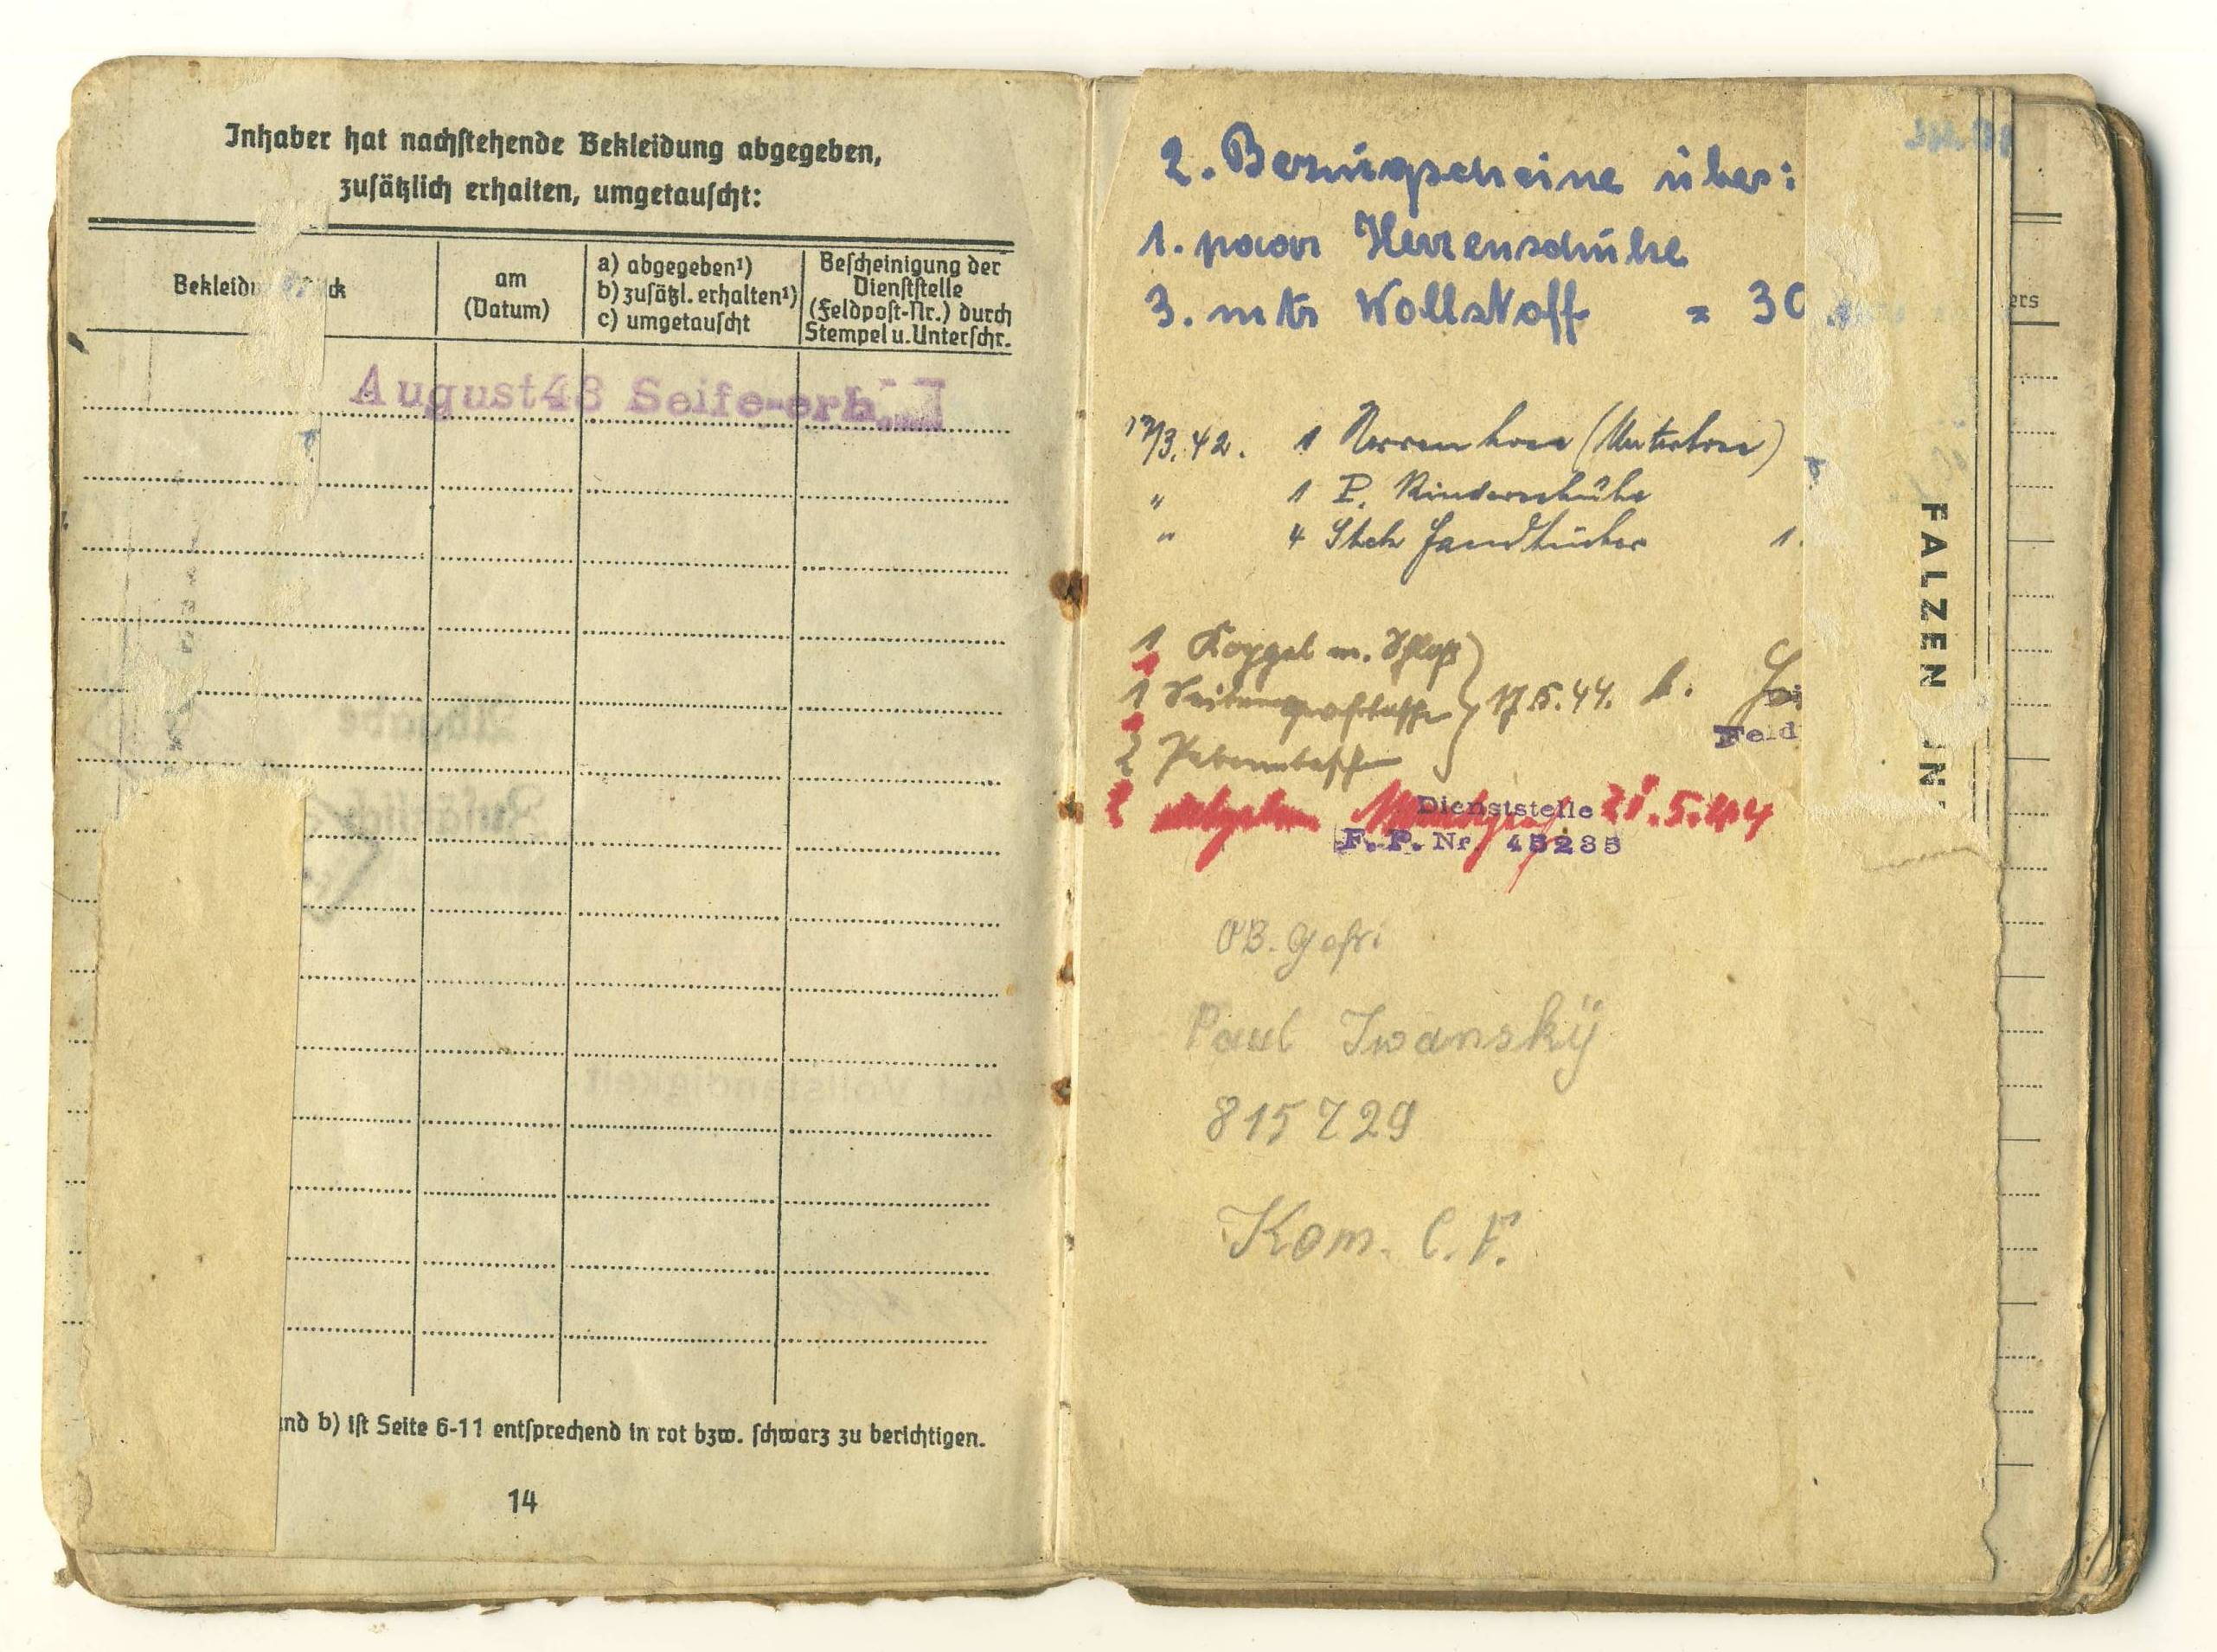 Inhaber hat nachstehende Bekleidung abgegeben,
zusätzlich erhalten, umgetauscht:
Bekleidu ck
am
(Datum)
a) abgegeben¹)
b) zusätzl. erhalten¹)
c) umgetauscht
Bescheinigung der
Dienststelle
(Feldpost-Nr.) durch
Stempel u. Unterschr.
August 43 Seife-erh.
nd b) ist Seite 6-11 entsprechend in rot bzw. schwarz zu berichtigen.
14
2. Bezugscheine über:
1. paar Herrenschuhe
3. mtr Wollstoff = 30
17/3.42. 1 Herrenhose (Unterhose)
" 1 P. Kinderschuhe
" 4 Stck Handtücher 1.
1 Koppel m. Schloß
1 17.5.44.
2
Feld
2 21.5.44
Dienststelle
F. P. Nr. 45235
OB. Gefr.
Paul Iwanskÿ
815729
Kom. C. F.
FALZEN UN
ers